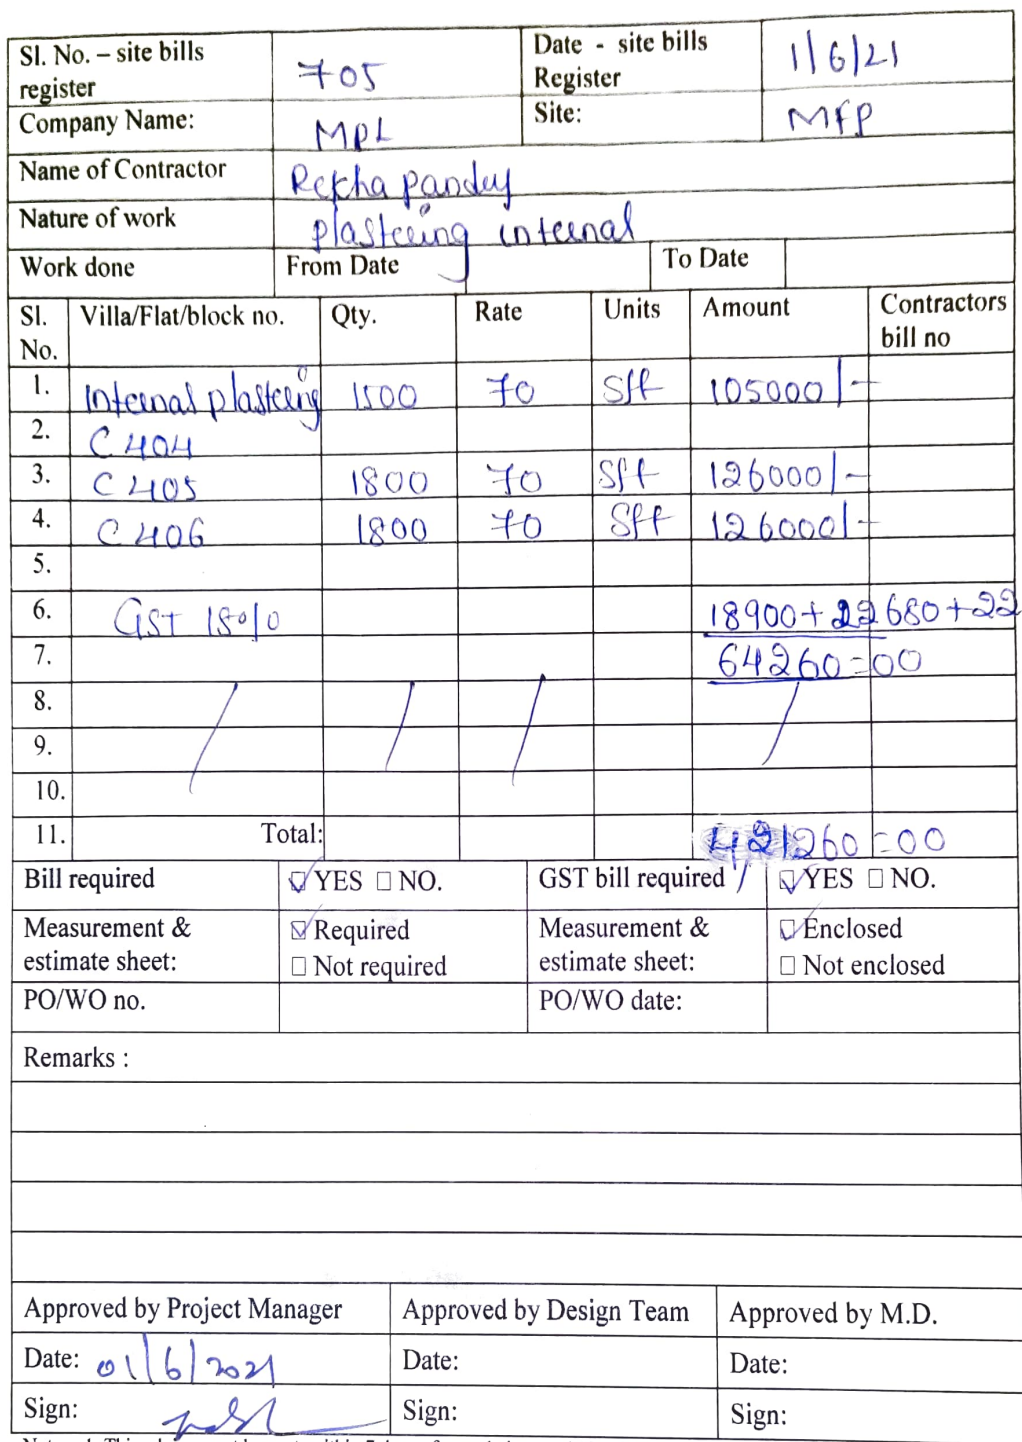 Sl. No. – site bills register 705 Date - site bills Register 1/6/21
Company Name: MPL Site: MFP
Name of Contractor Rekha pandey
Nature of work plasteeing inteenal
Work done From Date To Date
Sl. No. Villa/Flat/block no. Qty. Rate Units Amount Contractors bill no
1. Inteenal plasteeing 1500 70 Sft 105000/-
2. C 404
3. C 405 1800 70 Sft 126000/-
4. C 406 1800 70 Sft 126000/-
5.
6. GST 18% 18900+22680+22
7. 64260=00
8.
9.
10.
11. Total: 421260=00
Bill required YES NO. GST bill required YES NO.
Measurement & estimate sheet: Required Not required Measurement & estimate sheet: Enclosed Not enclosed
PO/WO no. PO/WO date:
Remarks :
Approved by Project Manager Approved by Design Team Approved by M.D.
Date: 01/6/2021 Date: Date:
Sign: Sign: Sign: